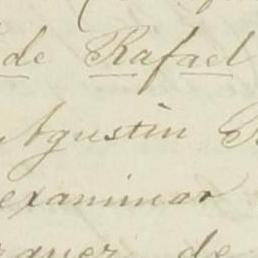 de Rafael
Agustin
examinar
de